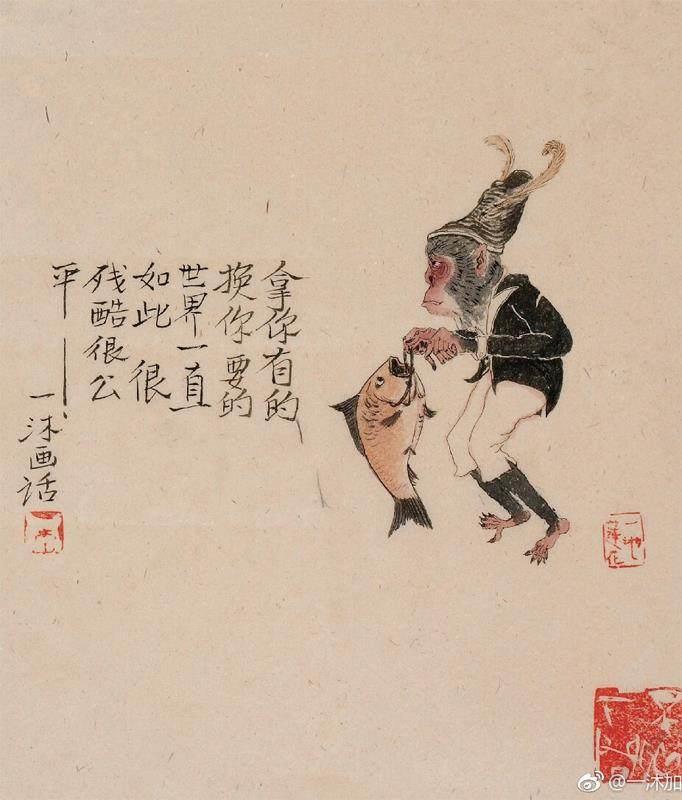 拿你有的
换你要的
世界一直
如此 很
残酷很公
平——
一沐画话
@一沐加